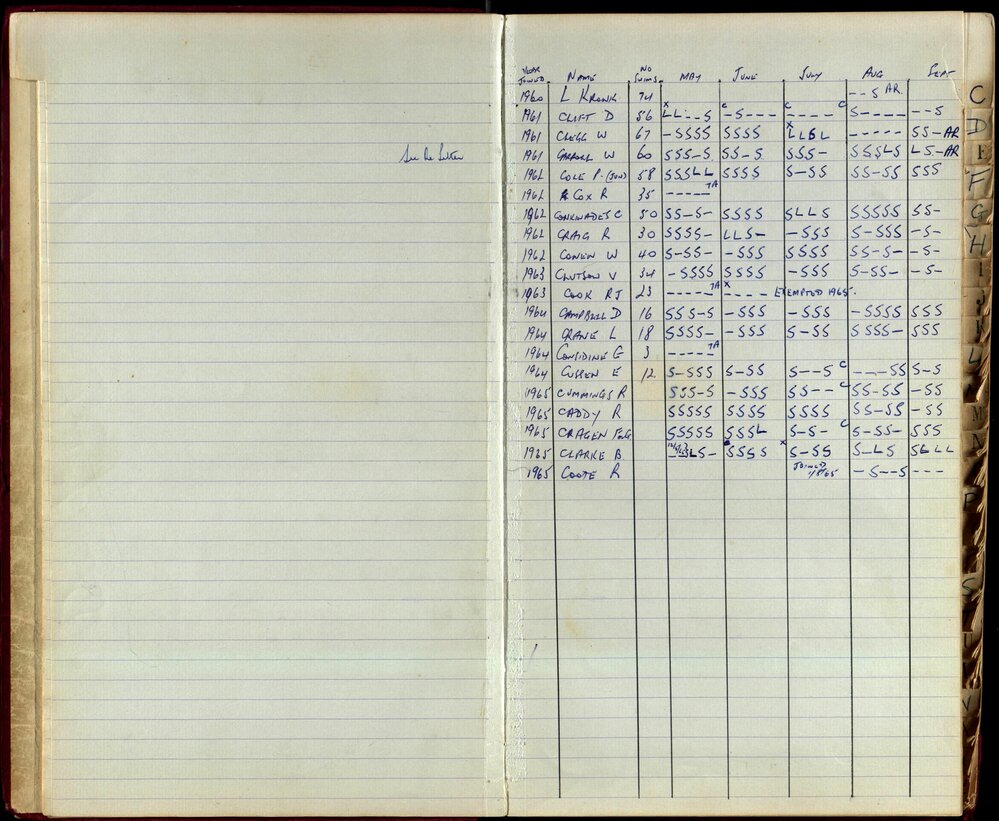 YEAR JOINED NAME NO SWIMS MAY JUNE JULY AUG SEPT
1960 L KRONK 74 --S AR
1961 CLIFT D 56 X LL--S C -S--- C ---- C S---- --S
1961 CLEGG W 67 -SSSS SSSS X LLSL ----- SS-AR
See Re Letter 1961 CARROLL W 60 SSS-S SS-S SSS- SSSLS LS-AR
1962 COLE P. (JUN) 58 SSSLL SSSS S-SS SS-SS SSS
1962 COX R 35 ----- TA
1962 C 50 SS-S- SSSS SLLS SSSSS SS-
1962 CRAIG R 30 SSSS- LLS- -SSS S-SSS -S-
1962 COWEN W 40 S-SS- -SSS SSSS SS-S- -S-
1963 CLUTSON V 34 -SSSS SSSS -SSS S-SS- -S-
1963 COOK RJ 23 ----- TA X ---- EXEMPTED 1965.
1964 CAMPBELL D 16 SSS-S -SSS -SSS -SSSS SSS
1964 CRANE L 18 SSSS- -SSS S-SS SSSS- SSS
1964 CONSIDINE G 3 ----- TA
1964 CUSSEN E 12 S-SSS S-SS S--S C ---SS S-S
1965 CUMMINGS R SSS-S -SSS SS-- C SS-SS -SS
1965 CADDY R SSSSS SSSS SSSS SS-SS -SS
1965 CRAGEN SSSSS SSSL S-S- C S-SS- SSS
1965 CLARKE B --SLS- SSSS X S-SS S-LS SLLL
1965 COOTE R JOINED 1/8/65 -S--S ---
C
D
E
F
G
H
I
J
K
L
M
N
P
S
T
V